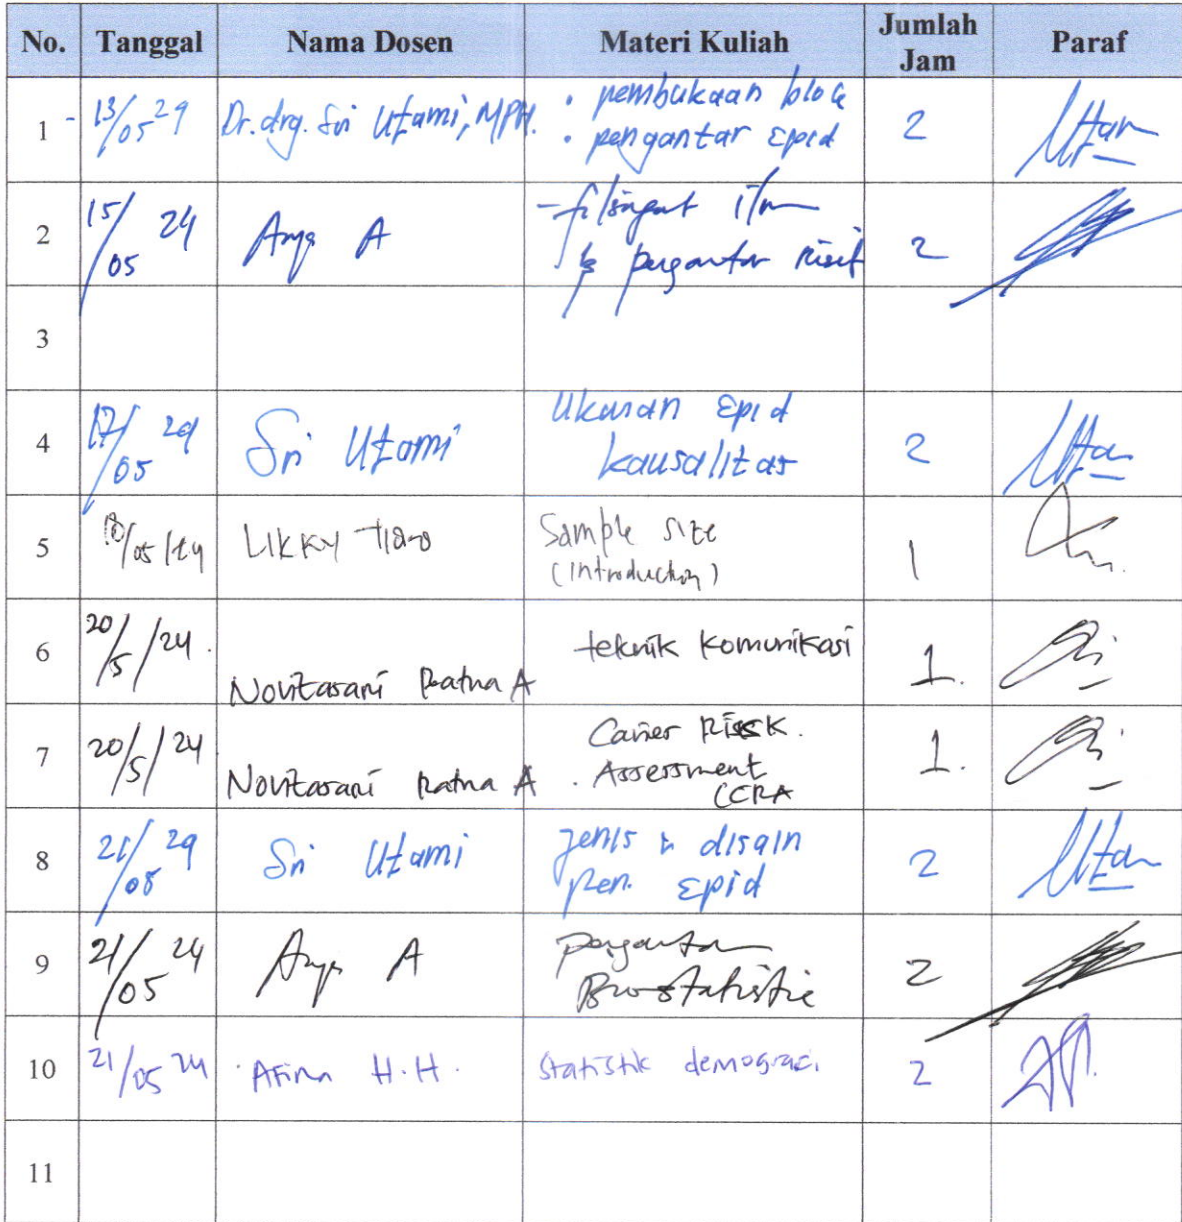 No. Tanggal Nama Dosen Materi Kuliah Jumlah Jam Paraf
1 - 13/05 24 Dr. drg. Sri Utami, MPH. • pembukaan block 2
• pengantar Epid
2 15/05 24 A 2
& pengantar riset
3
4 17/05 24 Sri Utami Ukuran Epid 2
kausalitas
5 18/05/24 LIKKY Sample size 1
(Introduction)
6 20/5/24. Novitasari Ratna A teknik komunikasi 1.
7 20/5/24 Novitasari Ratna A Caries Risk. 1.
. Assessment
(CRA
8 21/05 24 Sri Utami Jenis & disain 2
Pen. Epid
9 21/05 24 A Pengantar 2
Biostatistic
10 21/05 24 Afina H.H. Statistik demografi 2
11